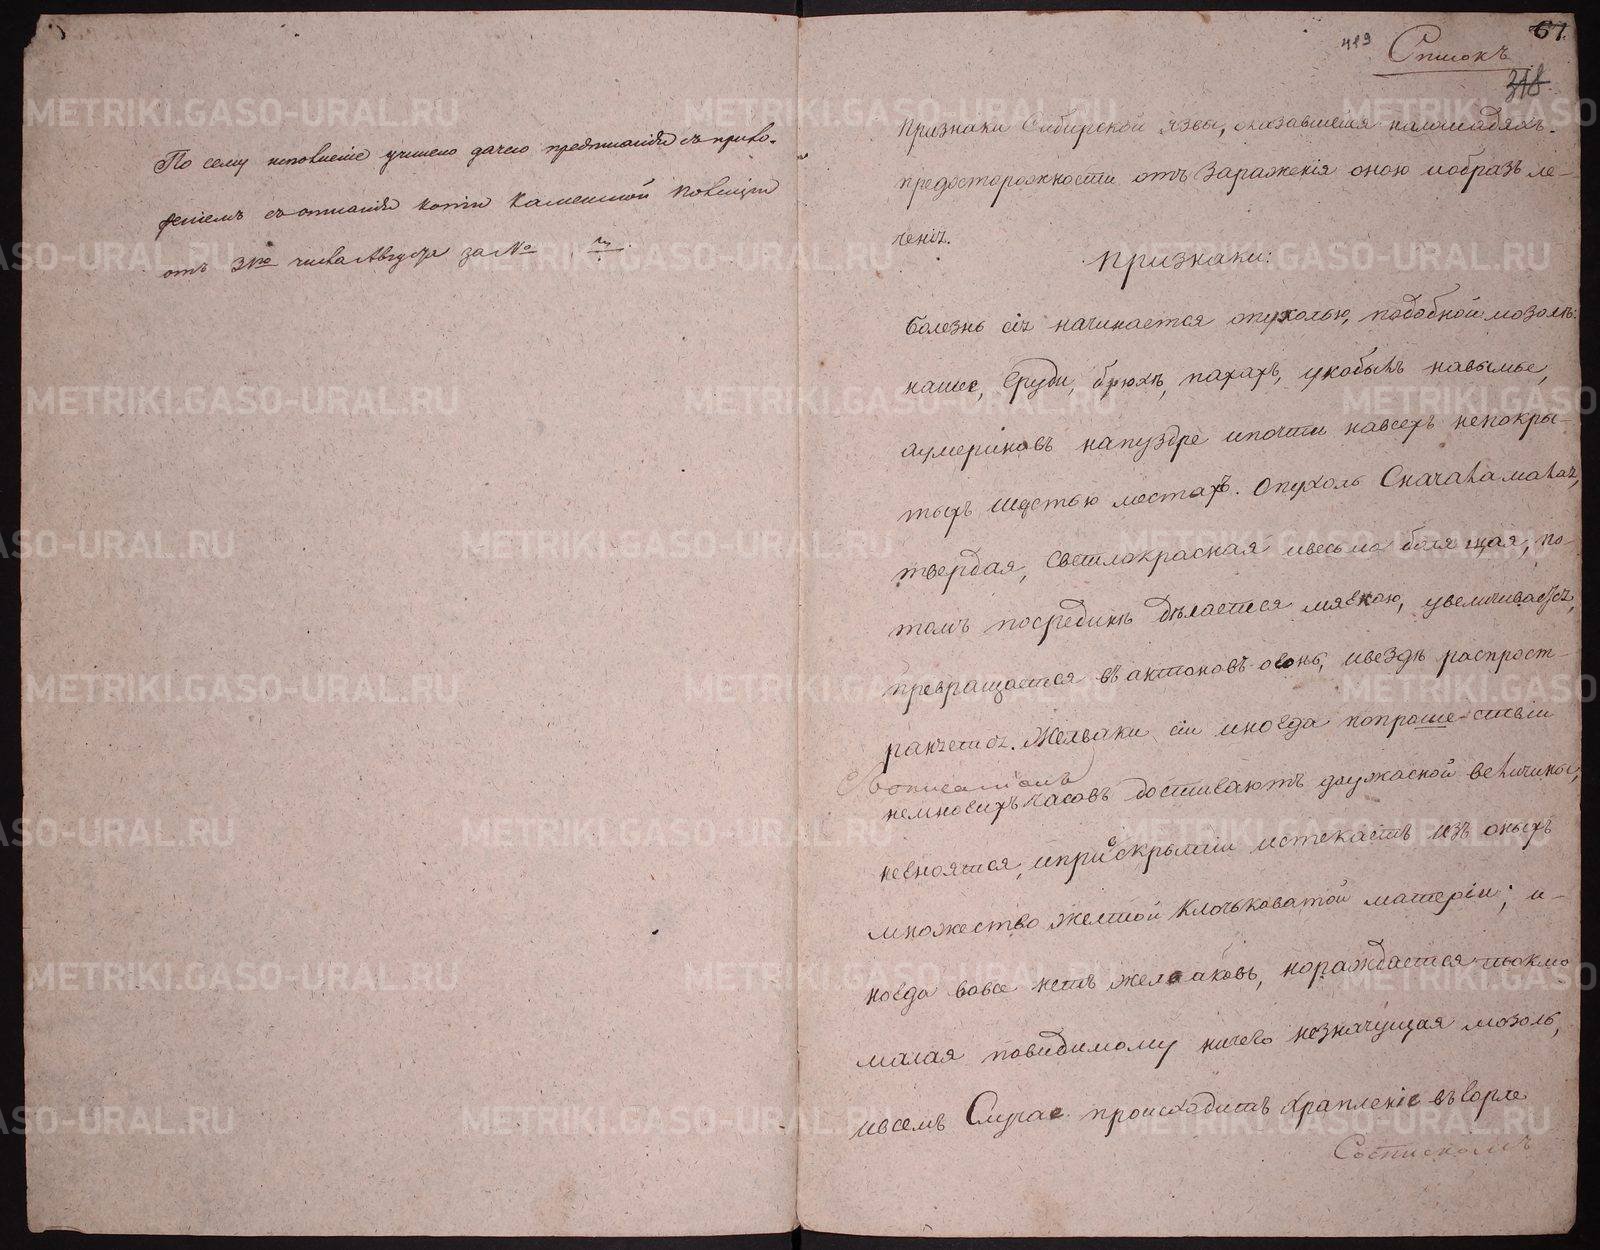 По сему исполненіе учинено дачею предписанія съ прило-
женіемъ съ описанія копіи Каменской полиціи
отъ 3го числа Августа за №
67.
419
Списокъ
318
Признаки Сибирской язвы, оказавшейся налошадяхъ.
предосторожности отъ Зараженія оною иобразъ ле-
ченія.
Признаки:
болезнь сія начинается опухолью, подобной мозолѣ:
нашее, Груди, брюхѣ, пахахъ, укобылъ навымье,
аумериновъ напуздре ипочти навсехъ непокры-
тыхъ шерстью местахъ. Опухоль Сначала малая,
твердая, Светлокрасная ивесьма болящая, по-
томъ посрединѣ дѣлается мягкою, увеличивается,
превращается въ антоновъ огонь, ивездѣ распрост-
раняется. Желваки сіи иногда попрошествіи
Сописаніемъ
немногихъ часовъ достигаютъ доужасной величины,
негноятся, иприскрытіи истекаетъ изъ оныхъ
множество желтой клочьковатой матеріи; и-
ногда вовсе нетъ желваковъ, нораждается токмо
малая повидимому ничего незначущая мозоль,
ивсемъ Случае происходитъ храпленіе въ горле
Соспискомъ
METRIKI.GASO-URAL.RU